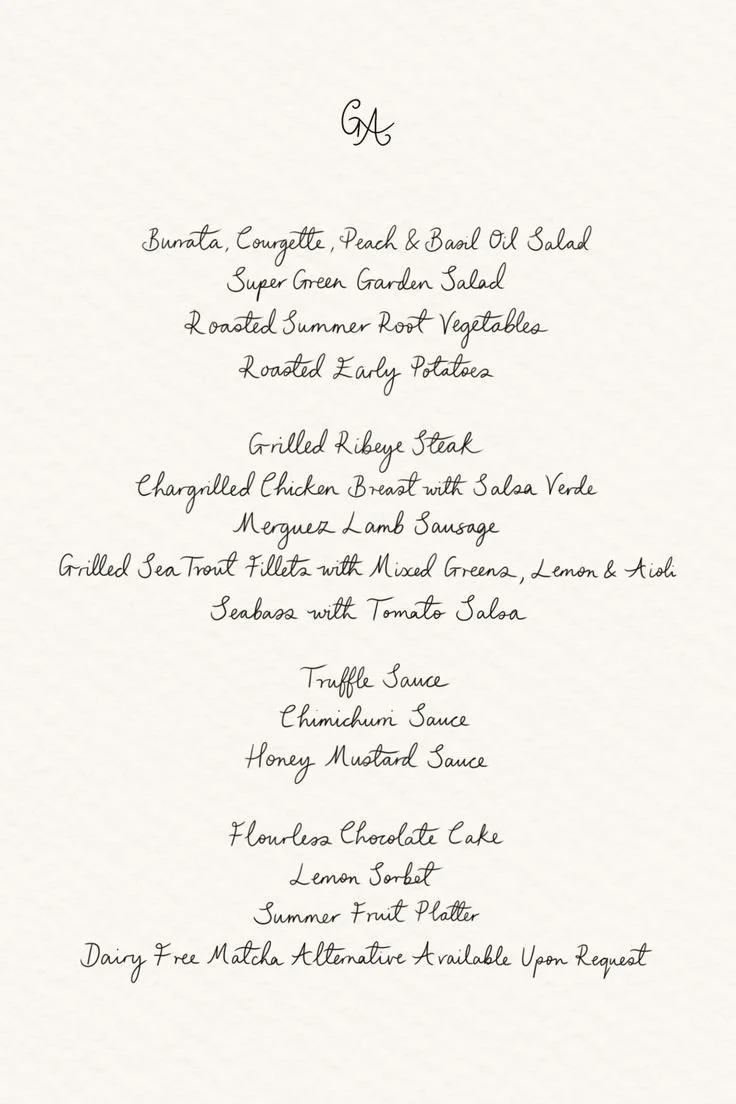 GA
Burrata, Courgette, Peach & Basil Oil Salad
Super Green Garden Salad
Roasted Summer Root Vegetables
Roasted Early Potatoes
Grilled Ribeye Steak
Chargrilled Chicken Breast with Salsa Verde
Merguez Lamb Sausage
Grilled Sea Trout Fillets with Mixed Greens, Lemon & Aioli
Seabass with Tomato Salsa
Truffle Sauce
Chimichurri Sauce
Honey Mustard Sauce
Flourless Chocolate Cake
Lemon Sorbet
Summer Fruit Platter
Dairy Free Matcha Alternative Available Upon Request